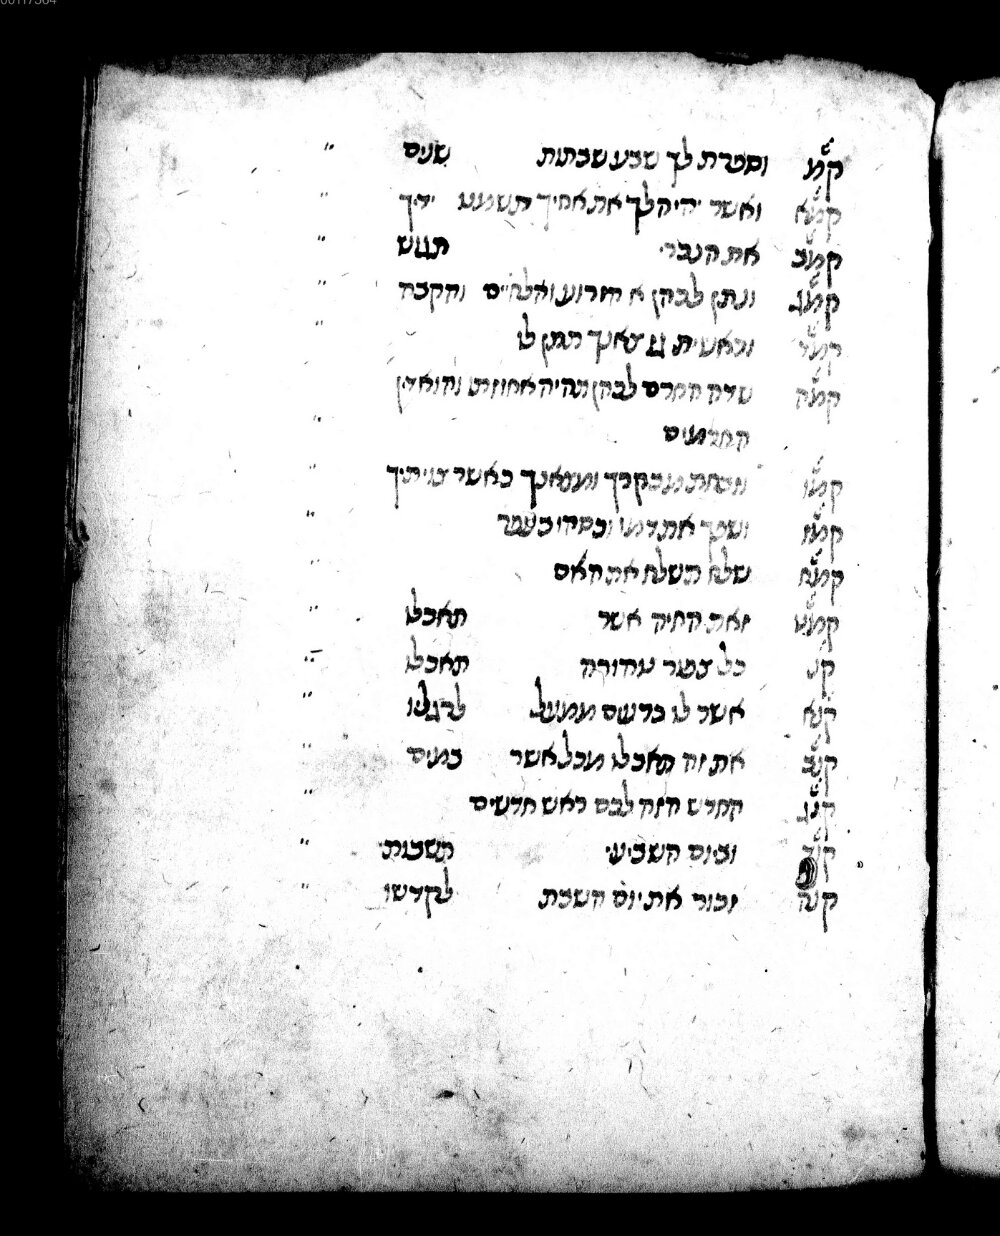 קמ וספרת לך שבע שבתות שנים
קמא ואשר יהיה לך את אחיך תשמט ידיך
קמב את הנכרי תגוש
קמג ונתן לכהן א הזרוע והלחיים והקבה
קמד וראשית גז צאנך תתן לו
קמה שדה החרם לכהן תהיה אחוזתו והוא דין
החרמים
קמו וזבחת מבקרך ומצאנך כאשר צויתיך
קמז ושפך את דמו וכסהו בעפר
קמח שלח תשלח את האם
קמט זאת החיה אשר תאכלו
קנ כל צפור טהורה תאכלו
קנא אשר לו כרעים ממעל לרגליו
קנב את זה תאכלו מכל אשר במים
קנג החדש הזה לכם ראש חדשים
קנד וביום השביעי תשבות
קנה זכור את יום השבת לקדשו